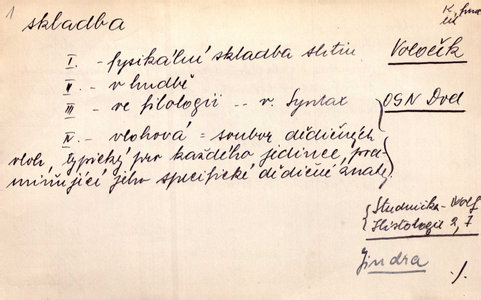 1
skladba
I. - fysikální skladba slitin
Voloček
II - v hudbě
III - ve filologii -- v. Syntax
OSN Dod
IV. - vlohová = soubor dědičných
vloh, typický pro každého jedince, pod-
miňující jeho specifické dědičné znaky
Studnička - Wolf
Histologie 2, 7
Jindra
./.